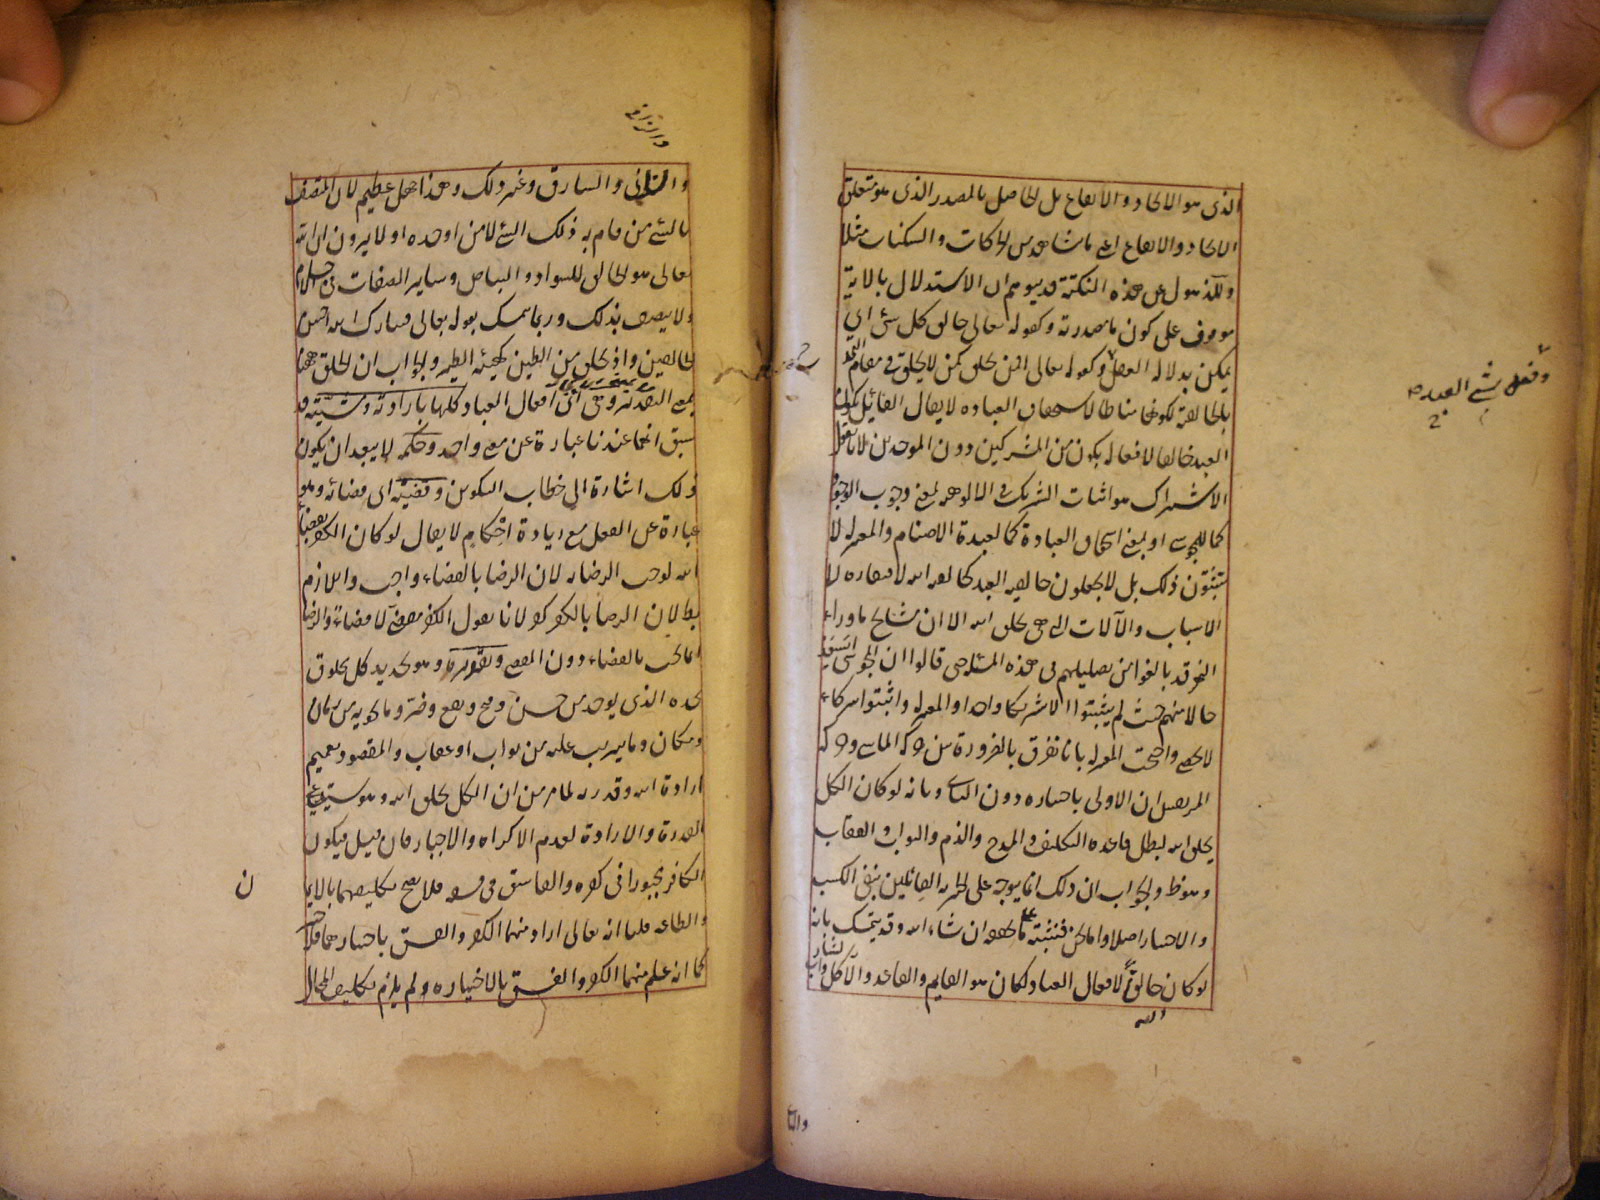 الذى هو الايجاد والايقاع بل الحاصل بالمصدر الذى هو متعلق
الايجاد والايقاع اعنى ما نشاهد من الحركات والسكنات مثلا
وللذهول عن هذه النكتة قد يتوهم ان الاستدلال بالاية
موقوف على كون ما مصدرية وكقوله تعالى خالق كل شئ اى
يمكن بدلالة العقل وكقوله تعالى افمن يخلق كمن لا يخلق فى مقام التمدح
بالخالقية وكونها مناطا لاستحقاق العبادة لا يقال القائل بكون
العبد خالقا لافعاله يكون من المشركين دون الموحدين لانا نقول
الاشراك هو اثبات الشريك فى الالوهية بمعنى وجوب الوجود
كما للمجوس او بمعنى استحقاق العبادة كما لعبدة الاصنام والمعتزلة لا
يثبتون ذلك بل لا يجعلون خالقية العبد كخالقية الله لافتقاره الى
الاسباب والآلات التى هى بخلق الله الا ان مشايخ ماوراء
النهر قد بالغوا فى تضليلهم فى هذه المسئلة حتى قالوا ان المجوس اسعد
حالا منهم حيث لم يثبتوا الا شريكا واحدا والمعتزلة اثبتوا شركاء
لا تحصى واحتجت المعتزلة بانا نفرق بالضرورة بين حركة الماشى وحركة
المرتعش ان الاولى باختياره دون الثانى وبانه لو كان الكل
بخلق الله لبطل قاعدة التكليف والمدح والذم والثواب والعقاب
وهو ظ والجواب ان ذلك انما يتوجه على الجبرية القائلين بنفى الكسب
والاختيار اصلا واما نحن فنثبته على ما نحققه ان شاء الله وقد يتمسك بانه
لو كان خالقا لافعال العباد لكان هو القايم والقاعد والآكل والشارب
والزانى والسارق وغير ذلك وهذا جهل عظيم لان المتصف
بالشئ من قام به ذلك الشئ لا من اوجده اولا يرون ان الله
تعالى هو الخالق للسواد والبياض وساير الصفات فى الاجسام
ولا يتصف بذلك وربما يتمسك بقوله تعالى فتبارك الله احسن
الخالقين واذ تخلق من الطين كهيئة الطير والجواب ان الخلق ههنا
بمعنى التقدير وهى اى افعال العباد كلها بارادته ومشيته قد
سبق انهما عندنا عبارة عن معنى واحد وحكمه لا يبعد ان يكون
ذلك اشارة الى خطاب التكوين وقضيته اى قضائه وهو
عبارة عن الفعل مع زيادة احكام لا يقال لو كان الكفر بقضاء
الله لوجب الرضا به لان الرضا بالقضاء واجب واللازم
بط لان الرضا بالكفر كفر لانا نقول الكفر مقضى لا قضاء والرضا
انما يجب بالقضاء دون المقضى وتقديره وهو تحديد كل مخلوق
بحده الذى يوجد من حسن وقبح ونفع وضر وما يحويه من زمان
ومكان وما يترتب عليه من ثواب او عقاب والمقصود تعميم
ارادة الله وقدرته لما مر من ان الكل بخلق الله وهو يستدعى
القدرة والارادة لعدم الاكراه والاجبار فان قيل فيكون
الكافر مجبورا فى كفره والفاسق فى فسقه فلا يصح تكليفهما بالايما
ن
والطاعة قلنا انه تعالى اراد منهما الكفر والفسق باختيارهما فلا جبر
كما انه علم منهما الكفر والفسق بالاختيار ولم يلزم تكليف المحال